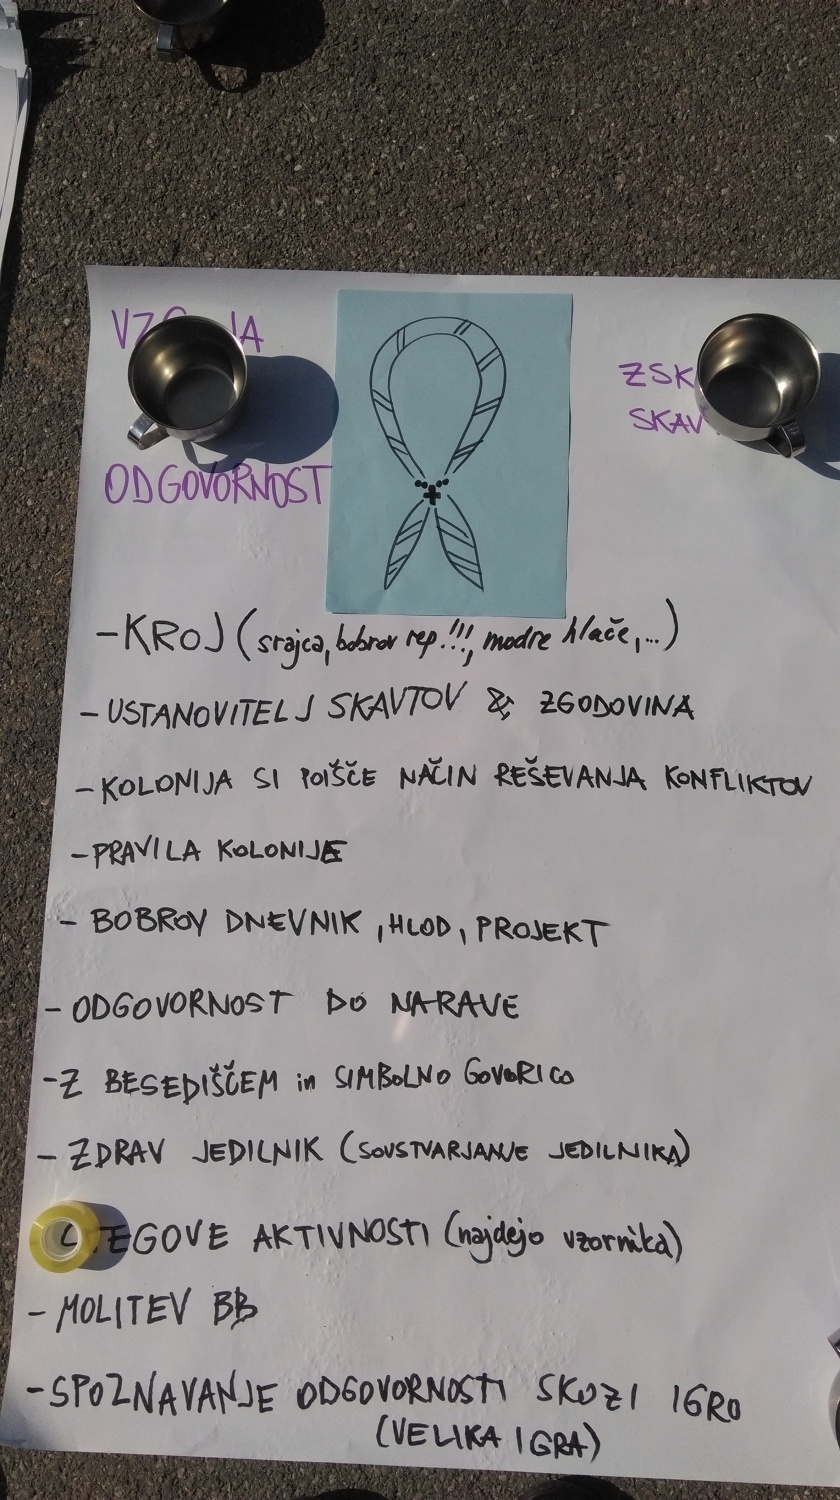 ODGOVORNOST
- KROJ (srajca, bobrov rep!!!, modre hlače,...)
- USTANOVITELJ SKAVTOV & ZGODOVINA
- KOLONIJA SI POIŠČE NAČIN REŠEVANJA KONFLIKTOV
- PRAVILA KOLONIJE
- BOBROV DNEVNIK, HLOD, PROJEKT
- ODGOVORNOST DO NARAVE
- Z BESEDIŠČEM in SIMBOLNO GOVORICO
- ZDRAV JEDILNIK (SOUSTVARJANJE JEDILNIKA)
AKTIVNOSTI (najdejo vzornika)
- MOLITEV BB
- SPOZNAVANJE ODGOVORNOSTI SKOZI IGRO
(VELIKA IGRA)